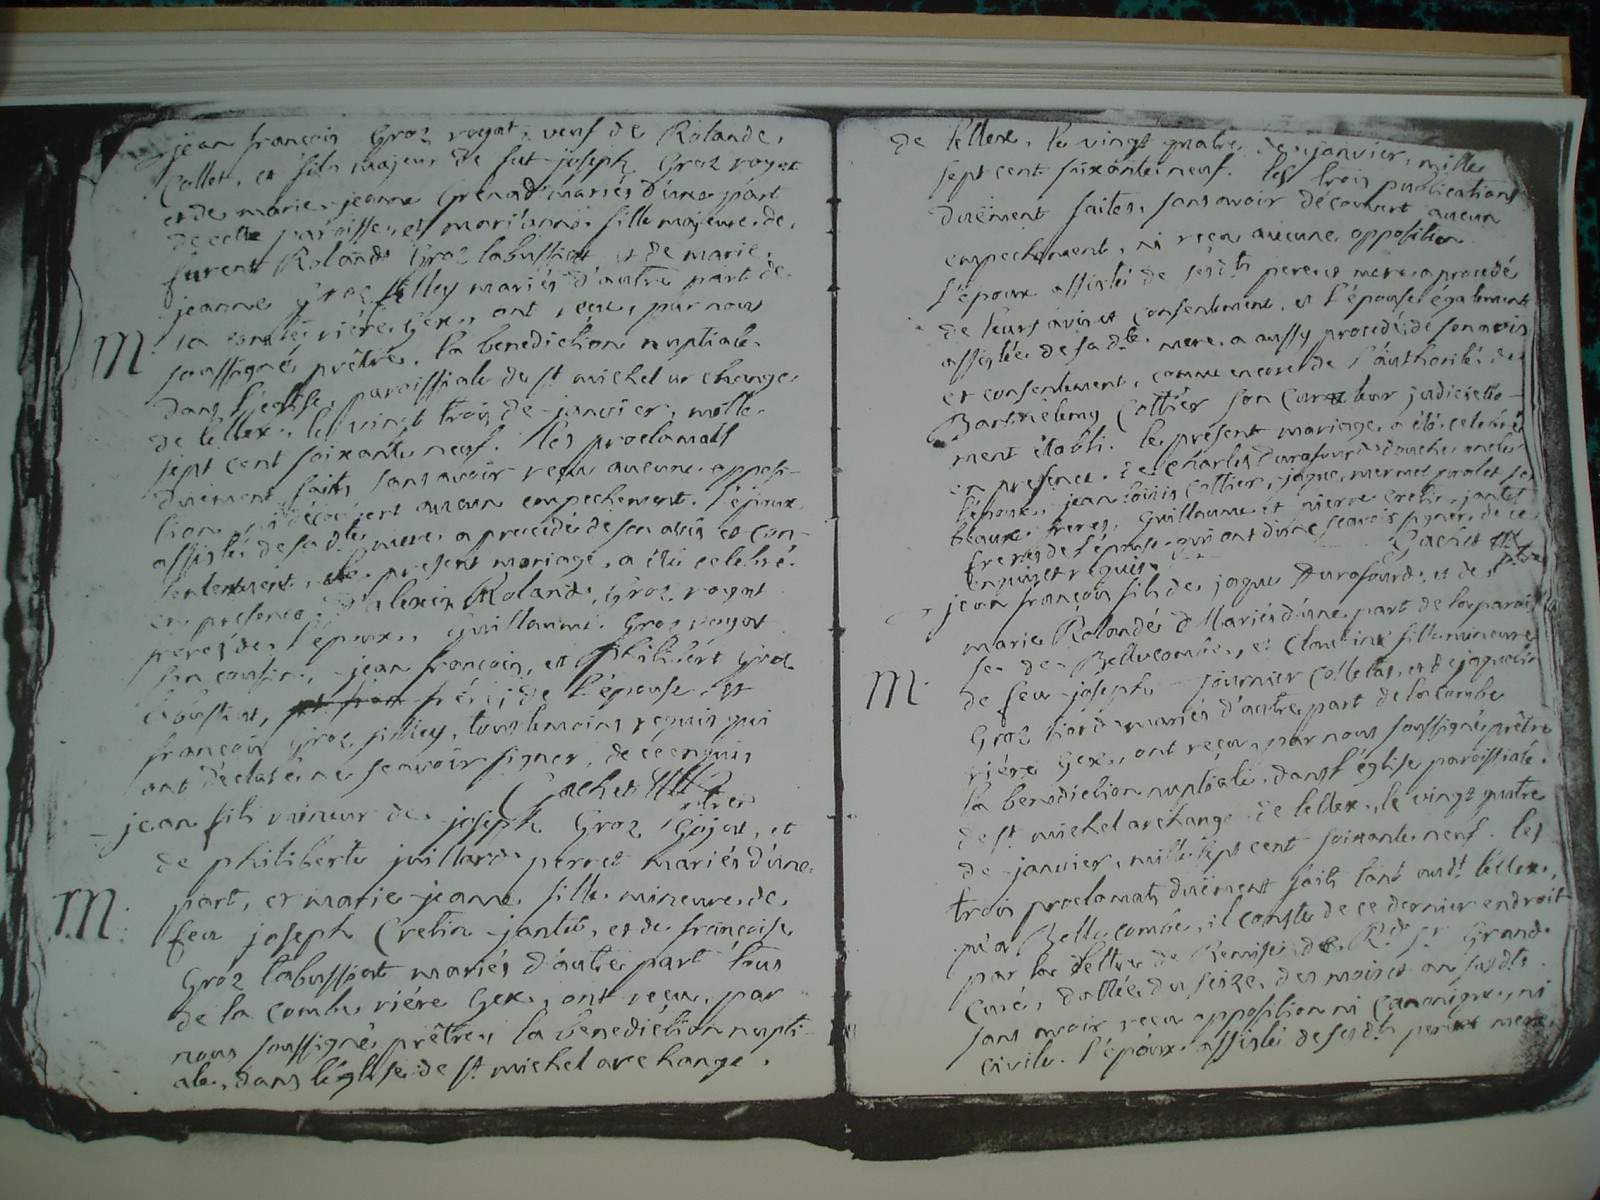 jean françois Groz royat, veuf de Rolande
Collet, et fils majeur de fut joseph Groz royat
et de marie jeanne Grenad mariés d'une part
de cette paroisse, et mari'anne fille majeure de
furent Roland Groz labussiat et de marie
jeanne Groz filley mariés d'autre part de
la combe riére Gex, ont reçu, par nous
M
soussigné prêtre, la benediction nuptiale
dans l'eglise paroissiale de st michel archange
de lellex, le vingt trois de janvier, mille
sept cent soixante neuf. les proclamats
duëment faits sans avoir reçu aucune opposi-
tion, ni découvert aucun empechement. l'époux
assisté de sa dte mere a procédé de son avis et con-
sentement, le présent mariage a été celebré
en presence d'alexis Roland Groz royat
de l'époux, Guillaume Groz royat
son cousin, jean françois, et philibert Groz
labussiat, fréres de l'épouse, et
françois Groz filley, tous temoins requis qui
ont déclaré ne scavoir signer, de ce enquis
Gachet
jean fils mineur de joseph Groz Gojat, et
de philiberte juillard perret mariés d'une
part, et marie jeanne fille mineure de
M:
feu joseph Cretin jantet, et de françoise
Groz labussiat mariés d'autre part tous
de la combe riére Gex, ont reçu, par
nous soussigné prêtre, la benediction nupti-
ale, dans l'église de st michel archange
de lellex, le vingt quatre de janvier, mille
sept cent soixante neuf. les trois publications
duëment faites, sans avoir découvert aucun
empechement, ni reçu aucune opposition
l'époux assisté de ses dts pere et mere a procedé
de leurs avis et consentement, et l'épouse également
assistée de sa dte mere a aussy procedé de son avis
et consentement, comme encore de l'authorité de
Barthélemy Collier son curateur judicielle-
ment établi. le présent mariage a été celebré
en presence de Charles Durafour
l'époux, jean loüis Collier, jaque mermet
beaux freres, Guillaume et pierre Cretin jantet
freres de l'épouse qui ont dit ne scavoir signer, de ce
enquis et requis. Gachet
jean françois fils de jaque Durafourd, et de
marie Rolandé mariés d'une part de la parois
se de Bellecombe, et Claudine fille mineure
M.
de feu joseph fournier Colletas, et de jaqueline
Groz mariés d'autre part de la combe
riére Gex, ont reçu, par nous soussigné prêtre
la benediction nuptiale dans l'église paroissiale
de st michel archange de lellex, le vingt quatre
de janvier, mille sept cent soixante neuf. les
trois proclamats duëment faits tant audt lellex,
qu'a Bellecombe, il conste de ce dernier endroit
par la lettre de Remise de Rd sr Grand
Curé, dattée du seize des mois et an susdts
sans avoir reçu opposition ni canonique, ni
civile. l'époux assisté de ses dts pere et mere